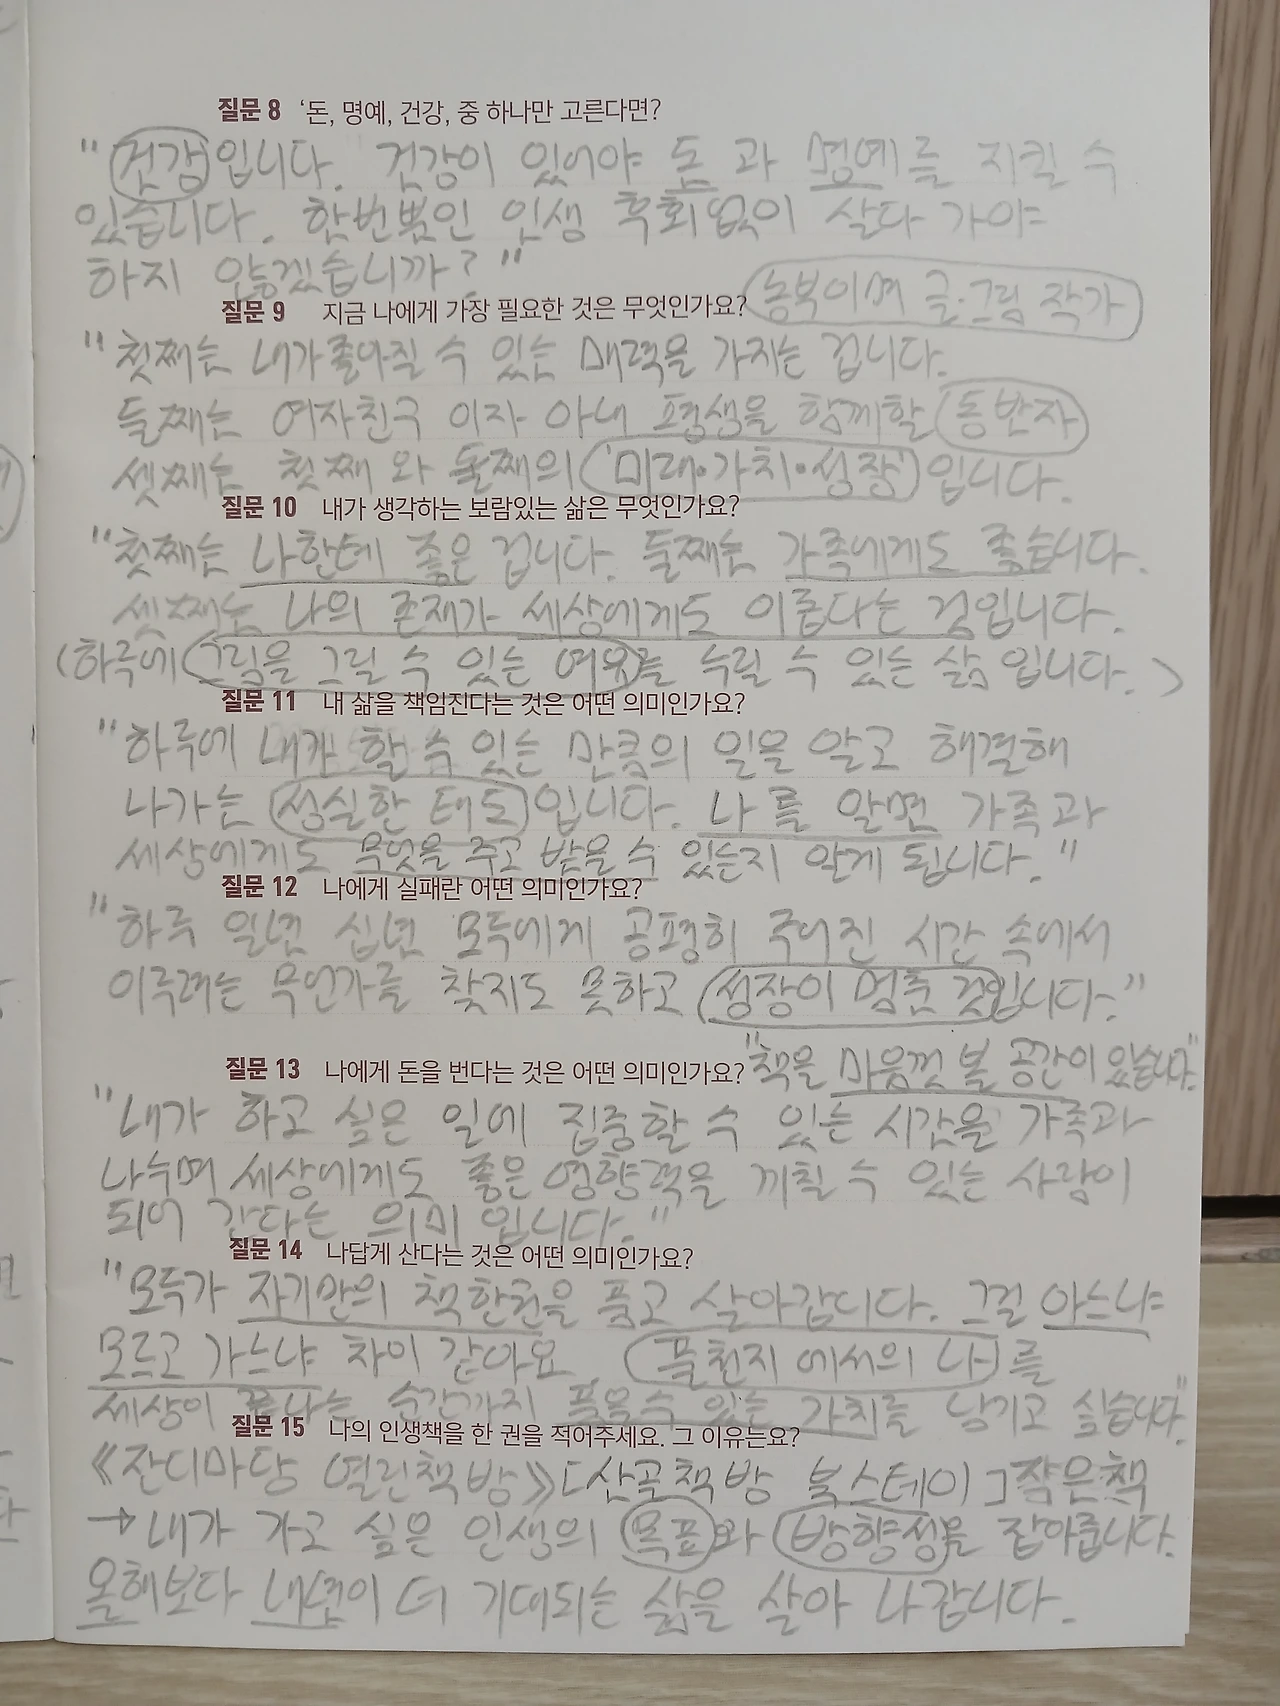 질문 8 ‘돈, 명예, 건강, 중 하나만 고른다면?
"건강입니다. 건강이 있어야 돈 과 명예를 지킬 수
있습니다. 한번뿐인 인생 후회없이 살다 가야
하지 않겠습니까?"
농부이며 글·그림 작가
질문 9 지금 나에게 가장 필요한 것은 무엇인가요?
"첫째는 내가 좋아질 수 있는 매력을 가지는 겁니다.
둘째는 여자친구 이자 아내 평생을 함께할 동반자
셋째는 첫째 와 둘째의 '미래·가치·성장'입니다.
질문 10 내가 생각하는 보람있는 삶은 무엇인가요?
"첫째는 나한테 좋은 겁니다. 둘째는 가족에게도 좋습니다.
셋째는 나의 존재가 세상에게도 이롭다는 것입니다.
(하루에 그림을 그릴 수 있는 여유를 누릴 수 있는 삶 입니다.>
질문 11 내 삶을 책임진다는 것은 어떤 의미인가요?
"하루에 내가 할 수 있는 만큼의 일을 알고 해결해
나가는 성실한 태도입니다. 나 를 알면 가족과
세상에게도 무엇을 주고 받을 수 있는지 알게 됩니다."
질문 12 나에게 실패란 어떤 의미인가요?
"하루 일년 십년 모두에게 공평히 주어진 시간 속에서
이루려는 무언가를 찾지도 못하고 성장이 멈춘 것입니다."
질문 13 나에게 돈을 번다는 것은 어떤 의미인가요? "책을 마음껏 볼 공간이 있습니다."
"내가 하고 싶은 일에 집중할 수 있는 시간을 가족과
나누며 세상에게도 좋은 영향력을 끼칠 수 있는 사람이
되어 간다는 의미 입니다."
질문 14 나답게 산다는 것은 어떤 의미인가요?
"모두가 자기만의 책 한권을 품고 살아갑니다. 그걸 아느냐
모르고 가느냐 차이 같아요 풀천지 에서의 나를
세상이 끝나는 순간까지 품을 수 있는 가치를 남기고 싶습니다."
질문 15 나의 인생책을 한 권을 적어주세요. 그 이유는요?
《잔디마당 열린책방》「산골책방 북스테이」작은책
→ 내가 가고 싶은 인생의 목표와 방향성을 잡아줍니다.
올해보다 내년이 더 기대되는 삶을 살아 나갑니다.